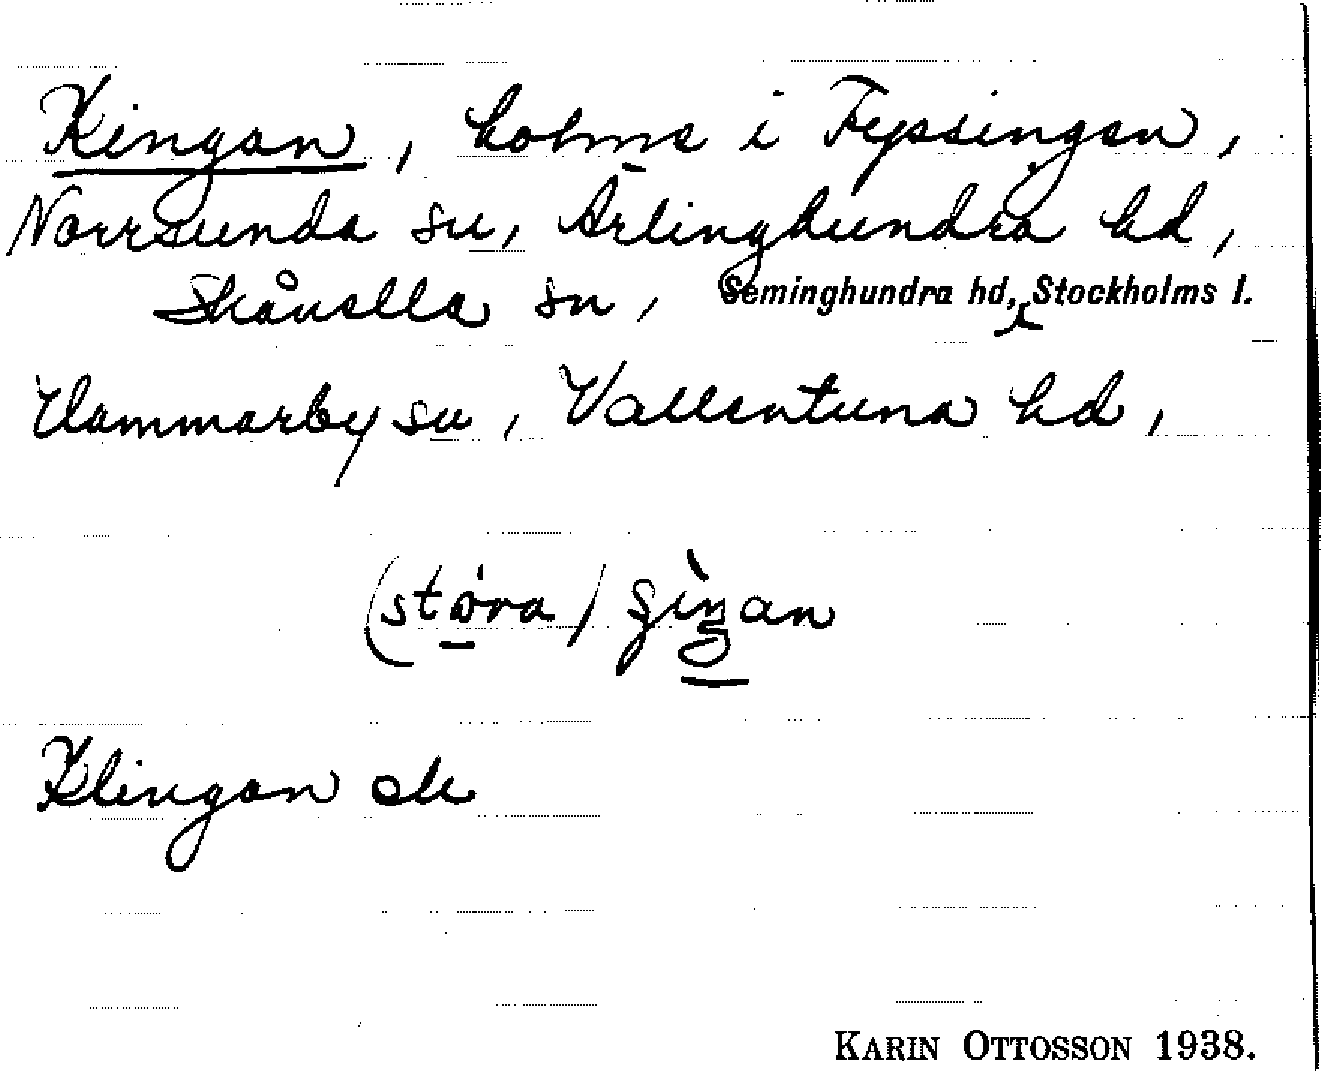 Kingan, holme i Fysingen,
Norrsunda sn, Ärlinghundra hd,
Skånella sn, Seminghundra hd, Stockholms l.
Hammarby sn, Vallentuna hd,
(stωra)
Klingan ek
KARIN OTTOSSON 1938.